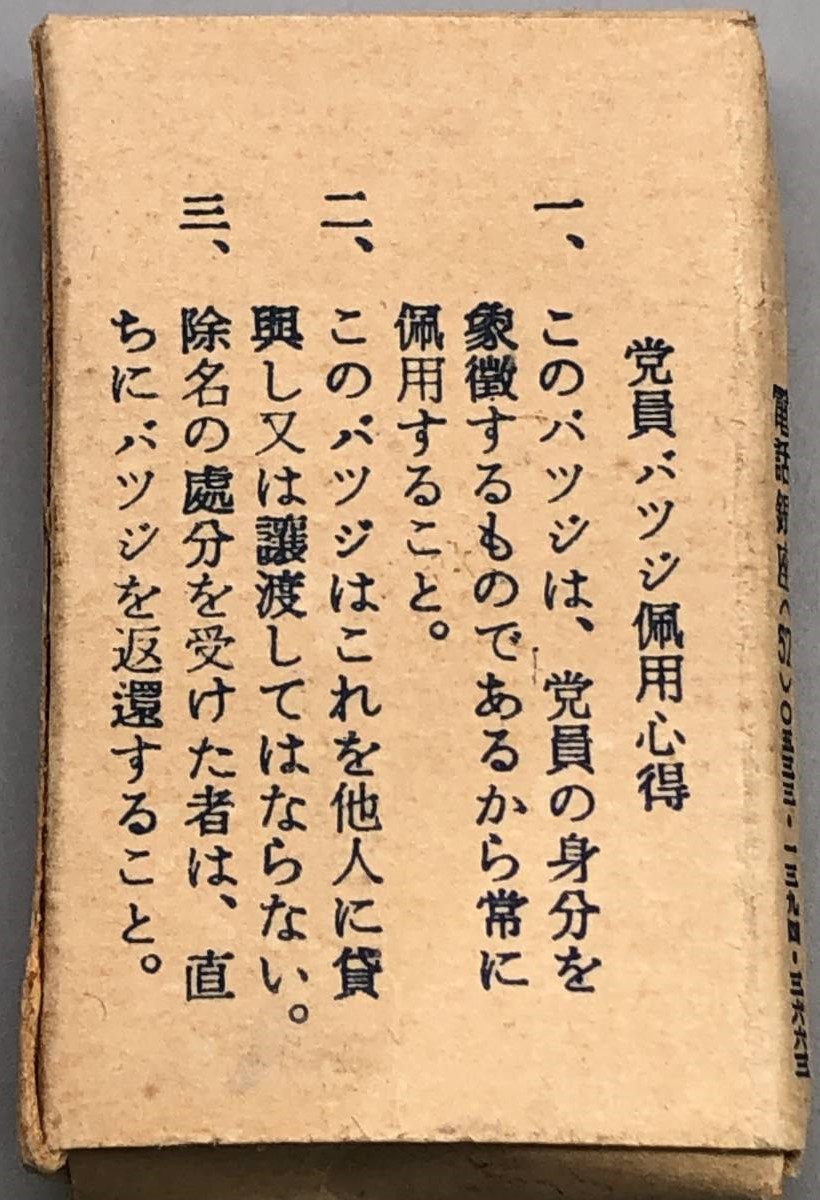 電話銀座(57)〇五三三・一三九四・三六六三
党員バツジ佩用心得
一、このバツジは、党員の身分を
象徴するものであるから常に
佩用すること。
二、このバツジはこれを他人に貸
與し又は讓渡してはならない。
三、除名の處分を受けた者は、直
ちにバツジを返還すること。